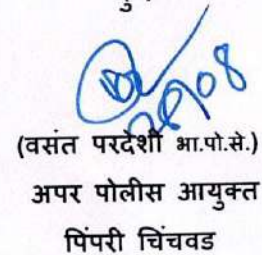 (वसंत परदेशी भा.पो.से.)
अपर पोलीस आयुक्त
पिंपरी चिंचवड